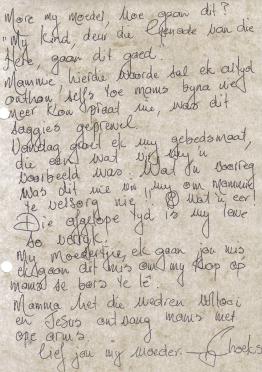 More my moeder, hoe gaan dit?
"My kind deur die Genade van die
Here, gaan dit goed.
Mammie, hierdie woorde sal ek altyd
onthou, selfs toe mams byna nie
meer kon praat nie, was dit
saggies geprewel.
Vandag groet ek my gebedsmaat,
die een wat vir my 'n
voorbeeld was. Wat 'n voorreg
was dit nie vir my om Mammie
te versorg nie. Wat 'n eer!
Die afgelope tyd is my lewe
so verryk.
My Moedertjie, ek gaan jou mis
ek gaan dit mis om my kop op
mams se bors te lê.
Mamma het die wedren voltooi
en Jesus ontvang mams met
ope arms.
Lief jou my moeder.